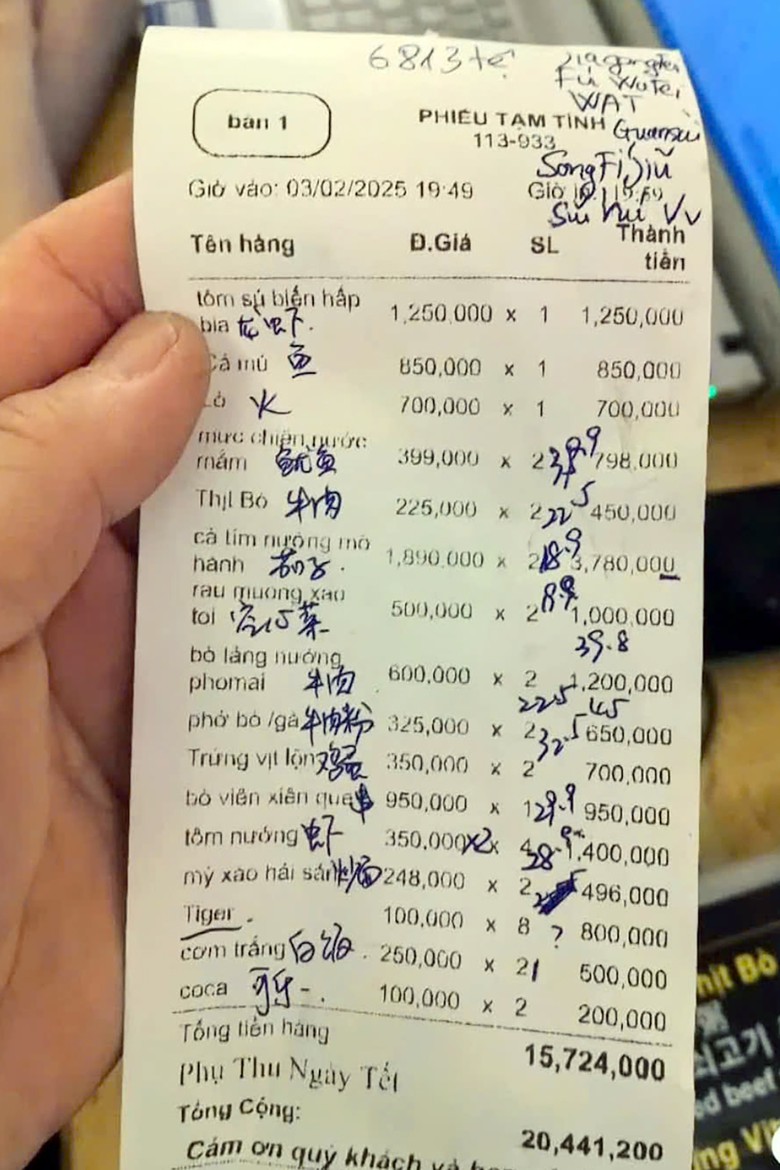 6813 tệ
Fú WuTei
WAT
bàn 1
PHIẾU TẠM TÍNH Guansui
113-933
SongFi Jiǔ
Giờ vào: 03/02/2025 19:49 Giờ
Sui Vv
Tên hàng Đ.Giá SL Thành tiền
tôm sú biển hấp
bia 龙虾. 1,250,000 x 1 1,250,000
Cá mú 鱼 850,000 x 1 850,000
火 700,000 x 1 700,000
mực chiên nước
mắm 鱿鱼 399,000 x 2 39.9 798,000
Thịt Bò 牛肉 225,000 x 2 22.5 450,000
cà tím nướng mỡ
hành 茄子. 1,890,000 x 2 18.9 3,780,000
rau muống xào
tỏi 空心菜 500,000 x 2 1,000,000
39.8
bò lảng nướng
phomai 牛肉 600,000 x 2 1,200,000
22.5 45
phở bò /gà 牛肉粉 325,000 x 2 32.5 650,000
Trứng vịt lộn 鸡蛋 350,000 x 2 700,000
bò viên xiên que 串 950,000 x 1 29.9 950,000
tôm nướng 虾 350,000 x2 x 4 1,400,000
mỳ xào hải sản 炒面 248,000 x 2 496,000
Tiger. 100,000 x 8 ? 800,000
cơm trắng 白饭. 250,000 x 2 1 500,000
coca 100,000 x 2 200,000
Tổng tiền hàng 15,724,000
Phụ Thu Ngày Tết
Tổng Cộng: 20,441,200
Cảm ơn quý khách và
hịt Bò
쇠고기
ed beef